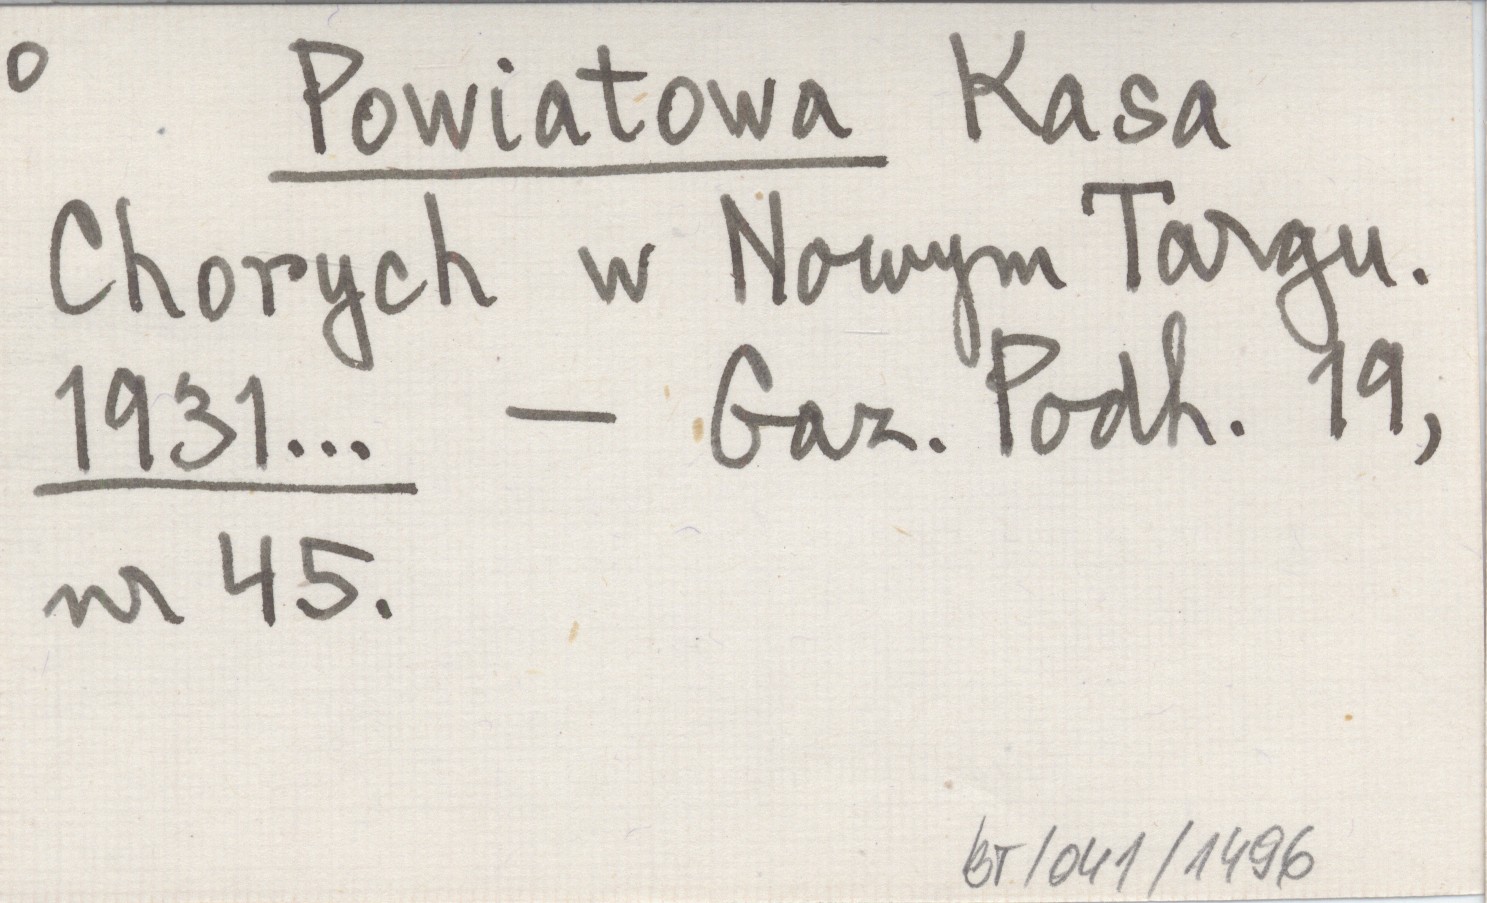 o Powiatowa Kasa
Chorych w Nowym Targu.
1931... — Gaz. Podh. 19,
nr 45.
BT/041/1496